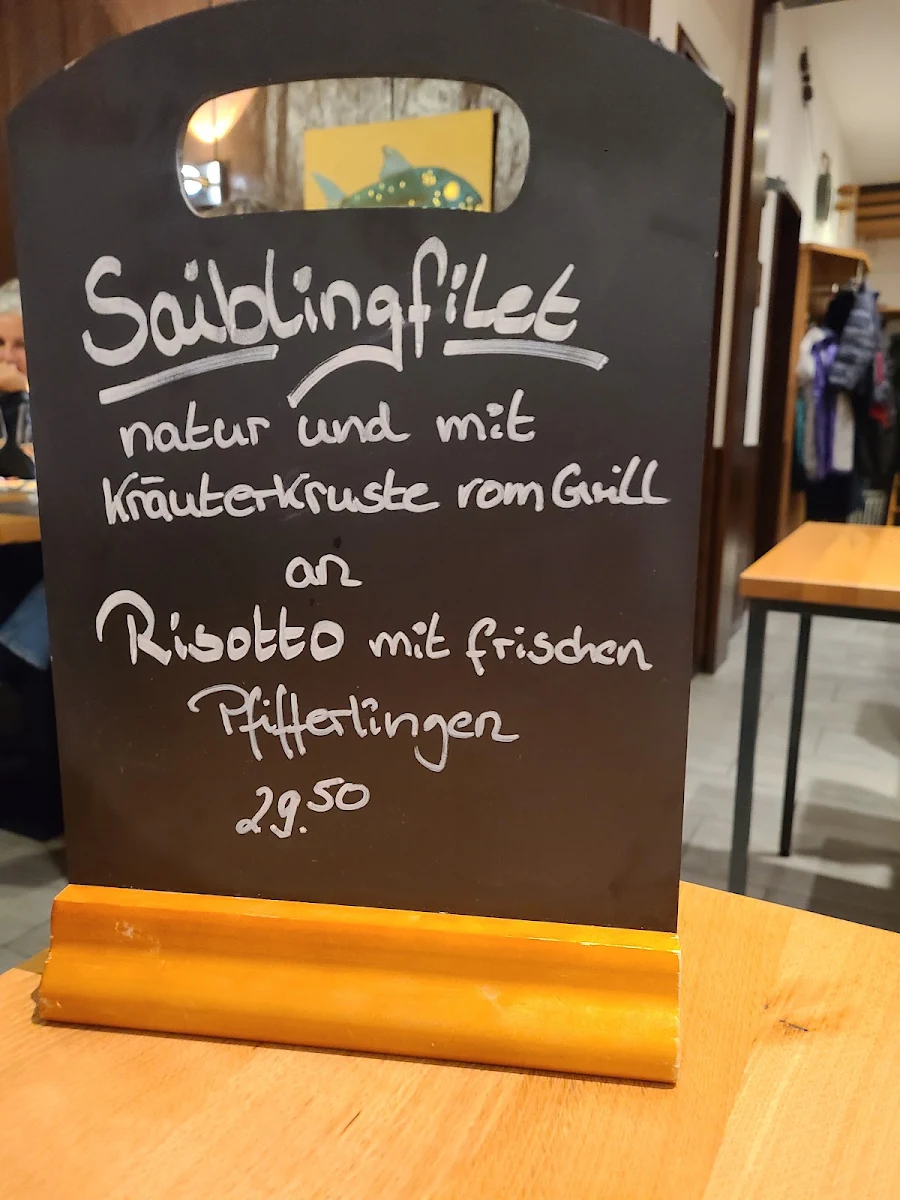 Saiblingfilet
natur und mit
Kräuterkruste vom Grill
an
Risotto mit frischen
Pfifferlingen
29.50